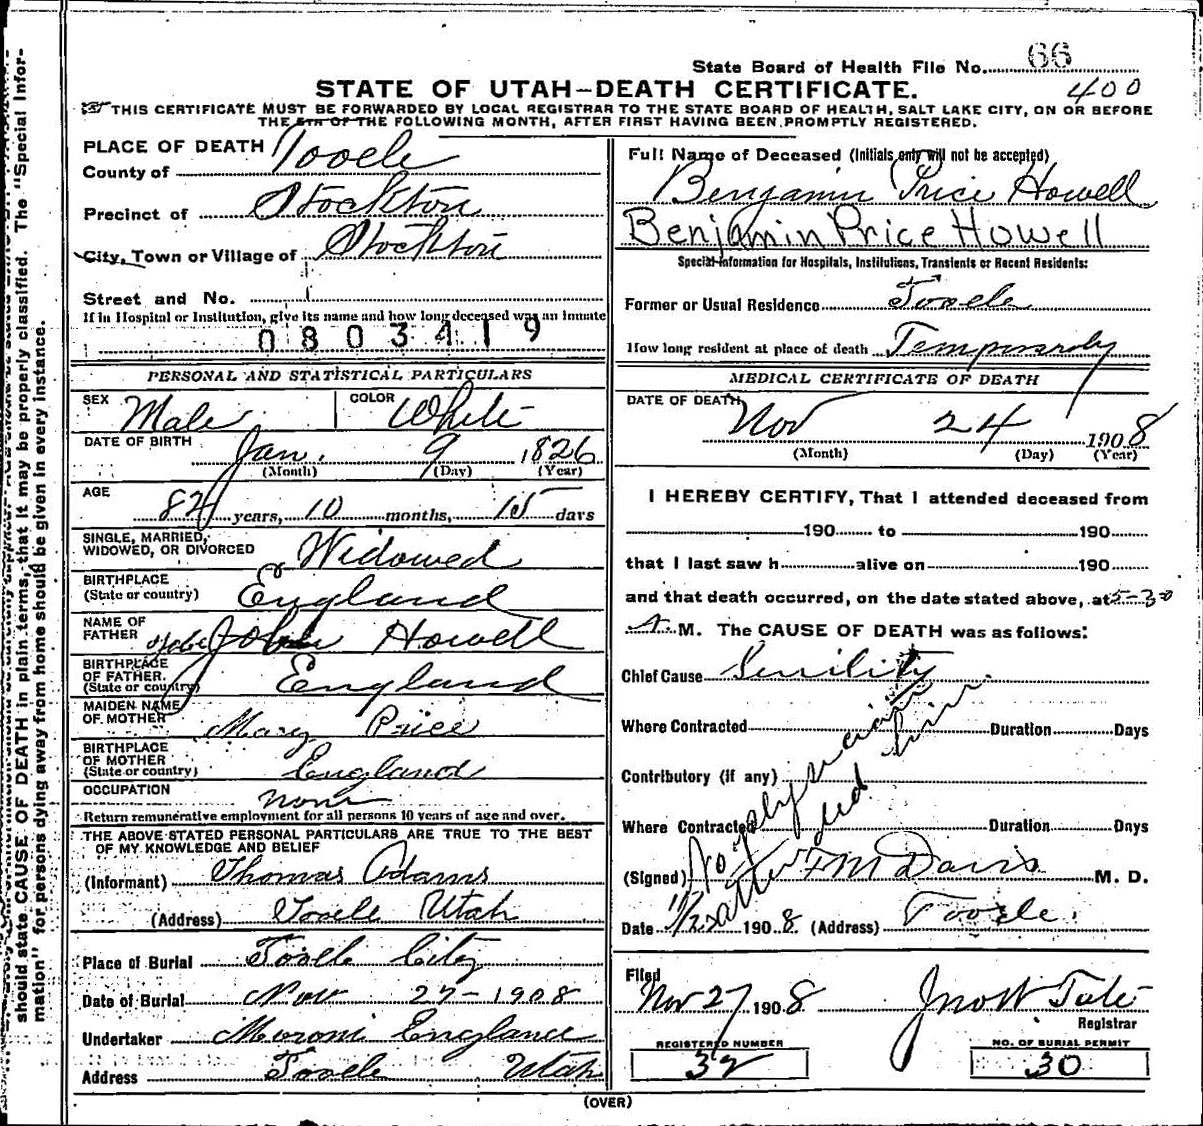 should state CAUSE OF DEATH in plain terms, that it may be properly classified. The "Special Infor-
mation" for persons dying away from home should be given in every instance.
State Board of Health File No. 66
STATE OF UTAH—DEATH CERTIFICATE.
400
THIS CERTIFICATE MUST BE FORWARDED BY LOCAL REGISTRAR TO THE STATE BOARD OF HEALTH, SALT LAKE CITY, ON OR BEFORE
THE 5TH OF THE FOLLOWING MONTH, AFTER FIRST HAVING BEEN PROMPTLY REGISTERED.
PLACE OF DEATH
County of Tooele
Precinct of Stockton
City, Town or Village of Stockton
Street and No.
If in Hospital or Institution, give its name and how long deceased was an inmate
0803419
PERSONAL AND STATISTICAL PARTICULARS
SEX Male COLOR White
DATE OF BIRTH Jan. 9 1826
(Month) (Day) (Year)
AGE
82 years, 10 months, 15 days
SINGLE, MARRIED,
WIDOWED, OR DIVORCED Widowed
BIRTHPLACE
(State or country) England
NAME OF
FATHER John Howell
BIRTHPLACE
OF FATHER.
(State or country) England
MAIDEN NAME
OF MOTHER Mary Price
BIRTHPLACE
OF MOTHER
(State or country) England
OCCUPATION none
Return remunerative employment for all persons 10 years of age and over.
THE ABOVE STATED PERSONAL PARTICULARS ARE TRUE TO THE BEST
OF MY KNOWLEDGE AND BELIEF
(Informant) Thomas Adams
(Address) Tooele Utah
Place of Burial Tooele City
Date of Burial Nov 27-1908
Undertaker Moroni England
Address Tooele Utah
Full Name of Deceased (Initials only will not be accepted)
Benjamin Price Howell
Benjamin Price Howell
Special Information for Hospitals, Institutions, Transients or Recent Residents:
Former or Usual Residence Tooele
How long resident at place of death Temporardy
MEDICAL CERTIFICATE OF DEATH
DATE OF DEATH
Nov 24 1908
(Month) (Day) (Year)
I HEREBY CERTIFY, That I attended deceased from
190 to 190
that I last saw h alive on 190
and that death occurred, on the date stated above, at 5-30
A. M. The CAUSE OF DEATH was as follows:
Chief Cause Senility
Where Contracted Duration Days
Contributory (if any)
Where Contracted Duration Days
No physician
attended him
(Signed) F M Davis M. D.
Date 1908 (Address) Tooele.
Filed
Nov 27 1908 Jno W Tate
Registrar
REGISTERED NUMBER
32
NO. OF BURIAL PERMIT
30
(OVER)